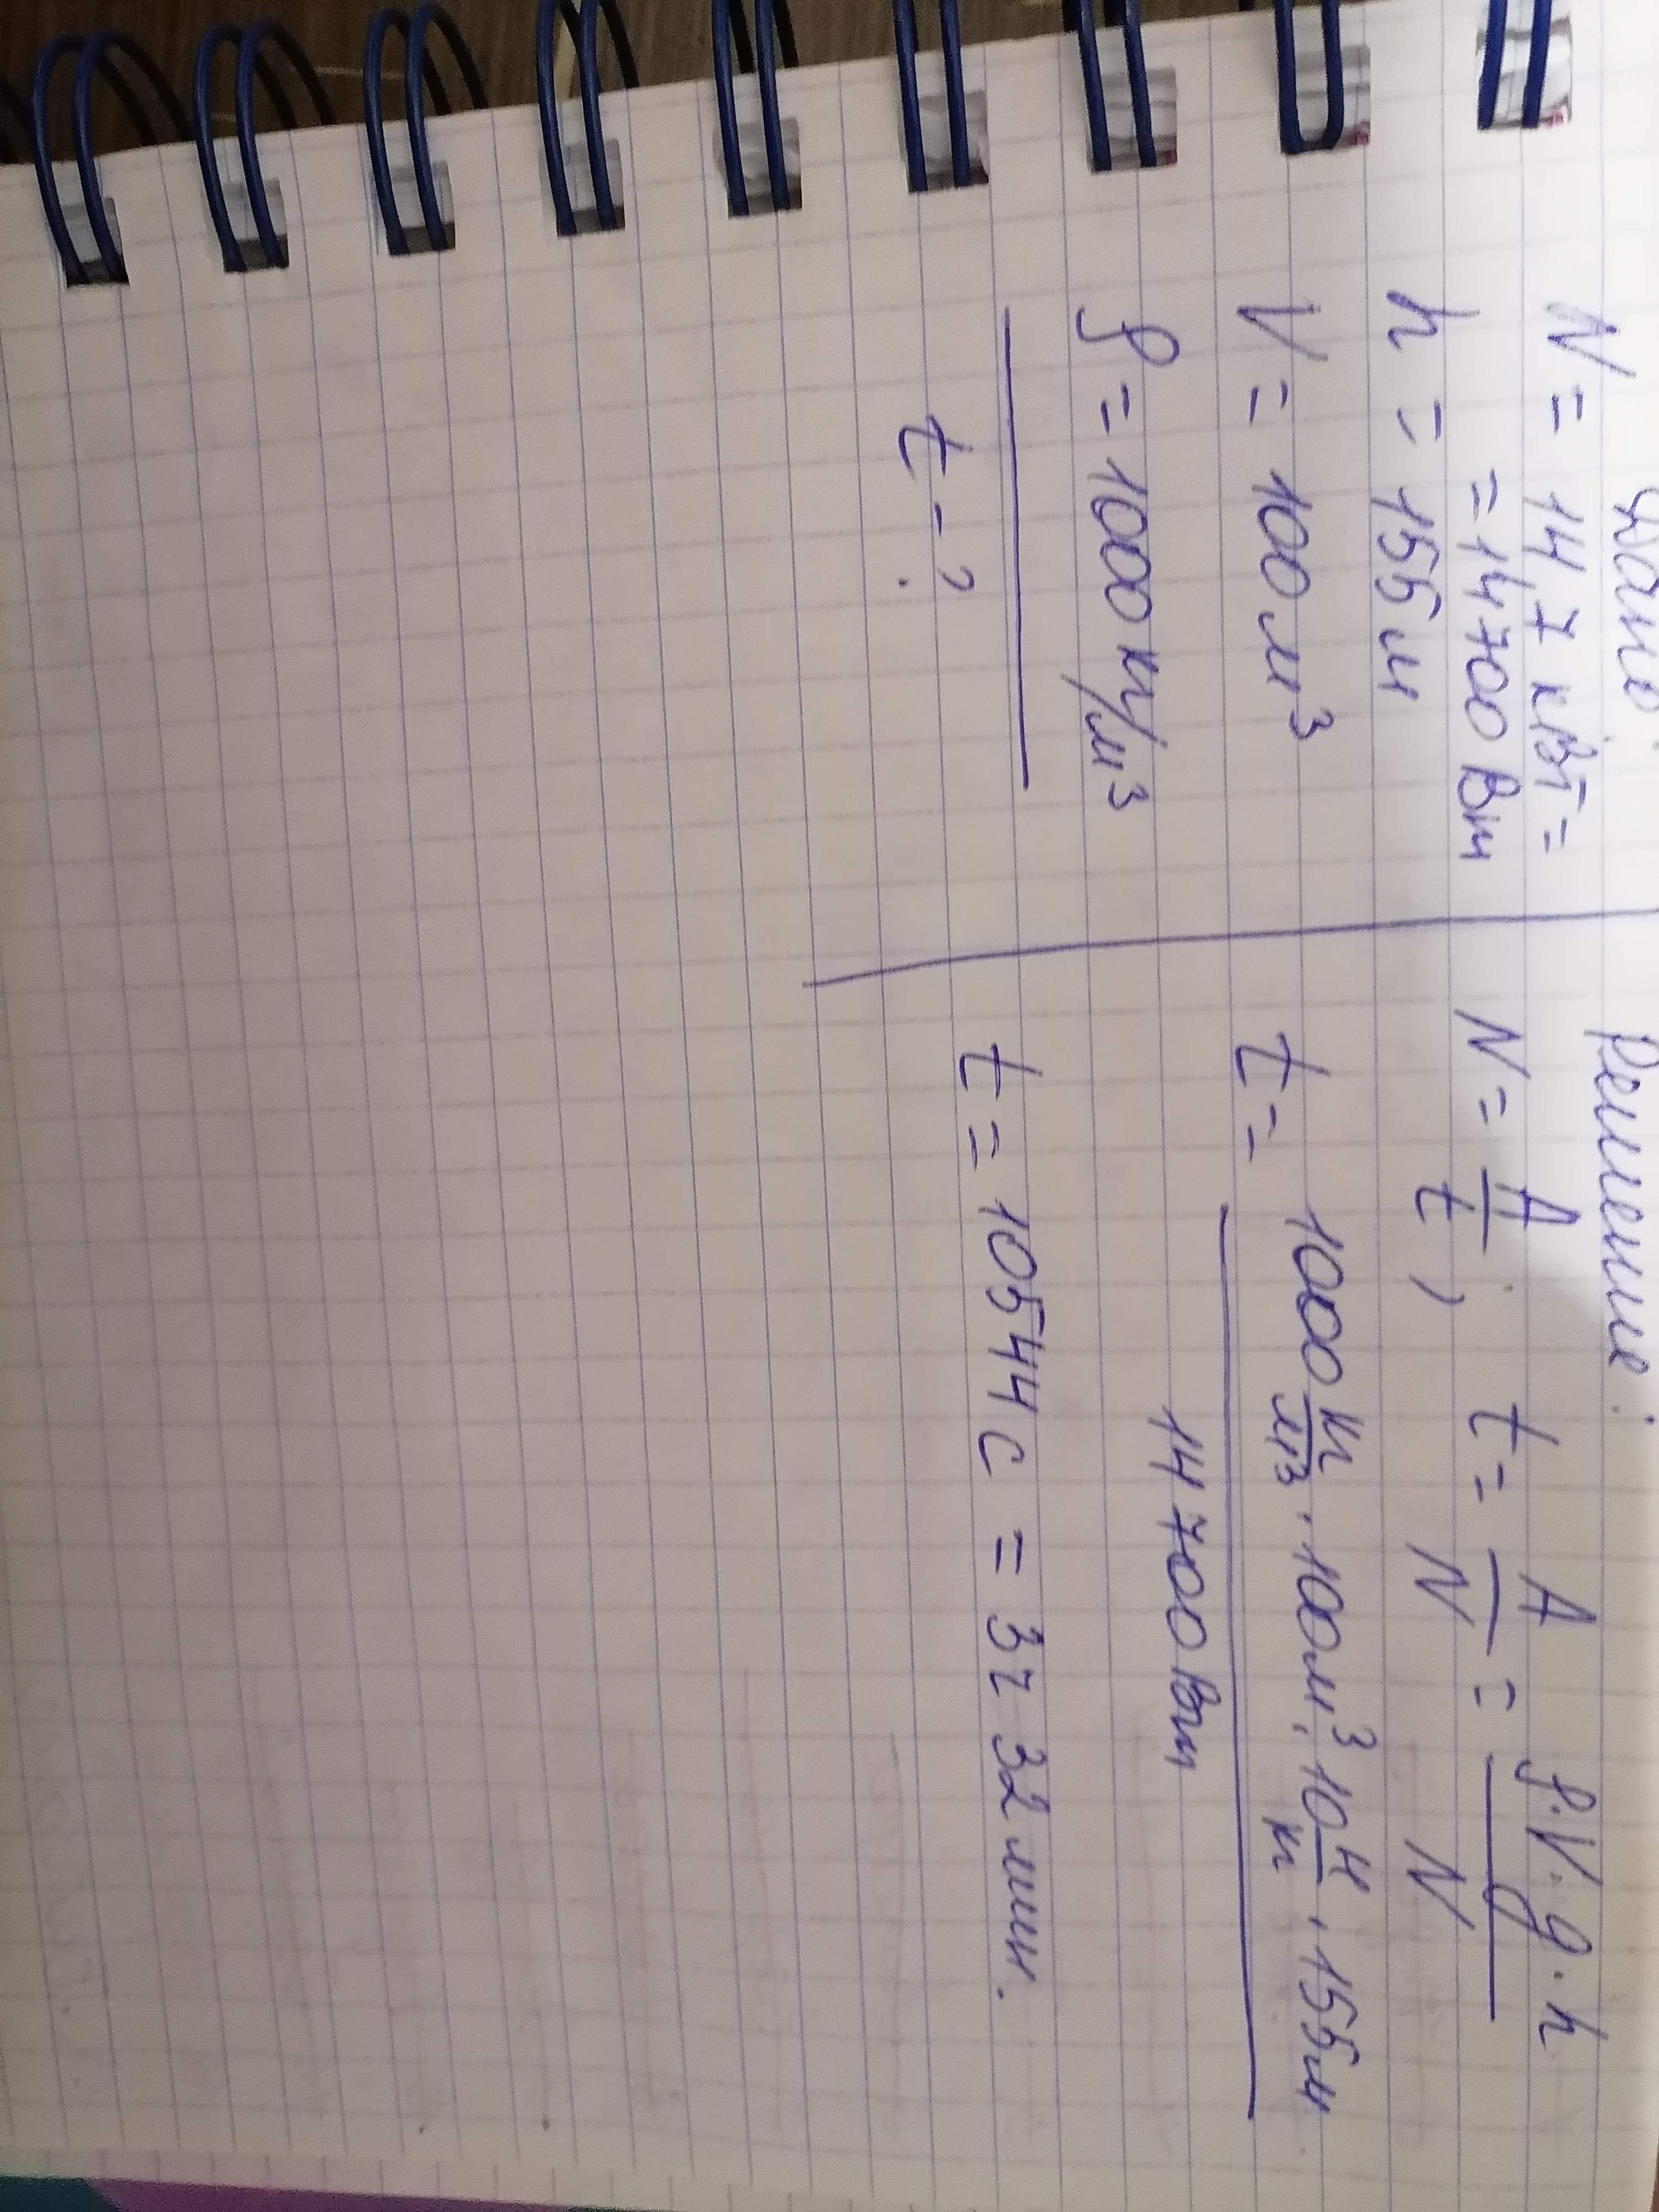 Дано
N = 14,7 кВт =
= 14700 Вт
h = 155 м
V = 100 м³
ρ = 1000 кг/м³
t - ?
Решение:
N = A/t ; t = A/N = ρ·V·g·h/N
t = 1000 кг/м³ · 100 м³ · 10 Н/кг · 155 м
14700 Вт
t = 10544 с = 3ч 32 мин.